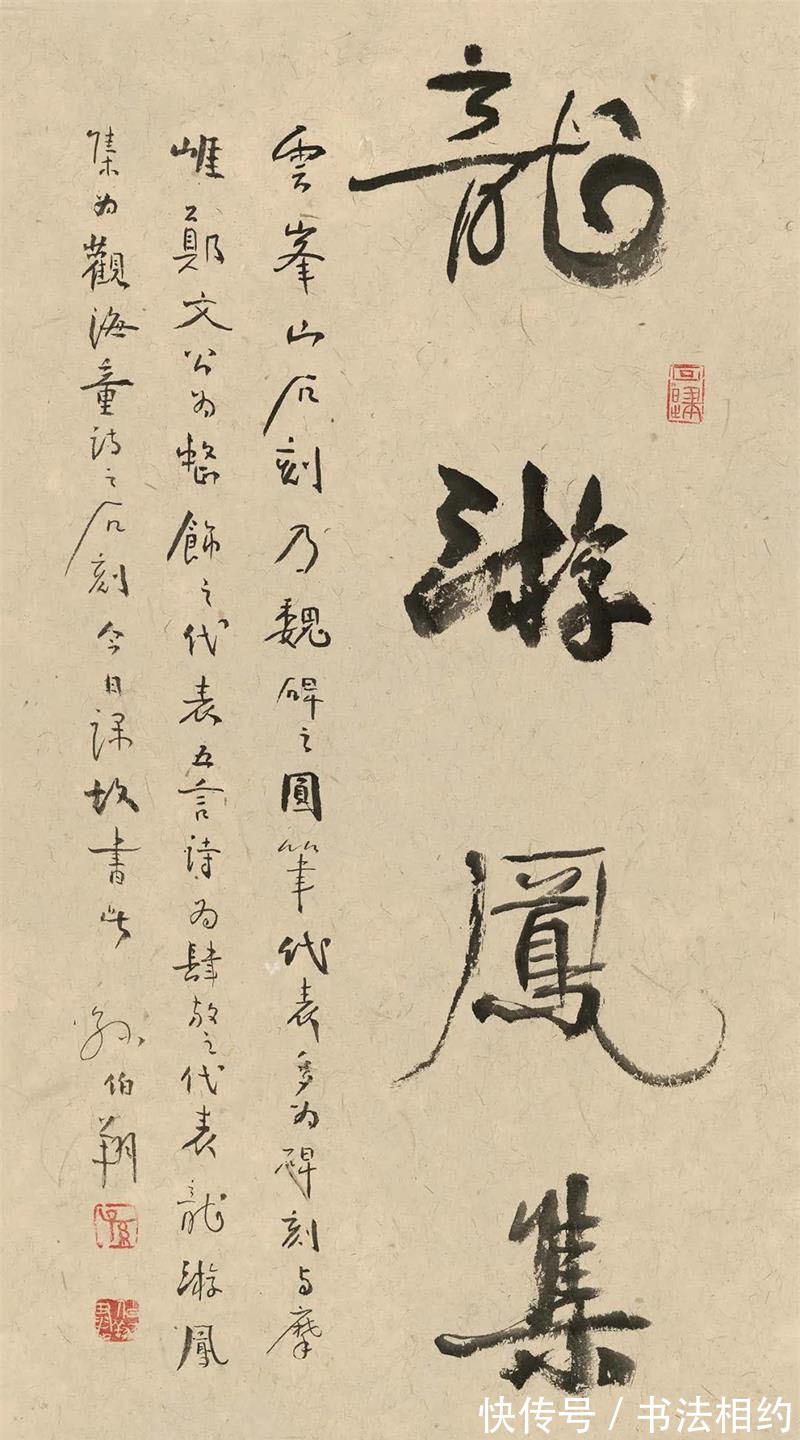 龍游鳳集
雲峯山石刻乃魏碑之圓筆代表多为碑刻与摩
崖鄭文公为整飾之代表五言詩为肆放之代表龍游鳳
集为觀海童詩之石刻今日課故書此 孙伯翔
快传号 / 书法相约